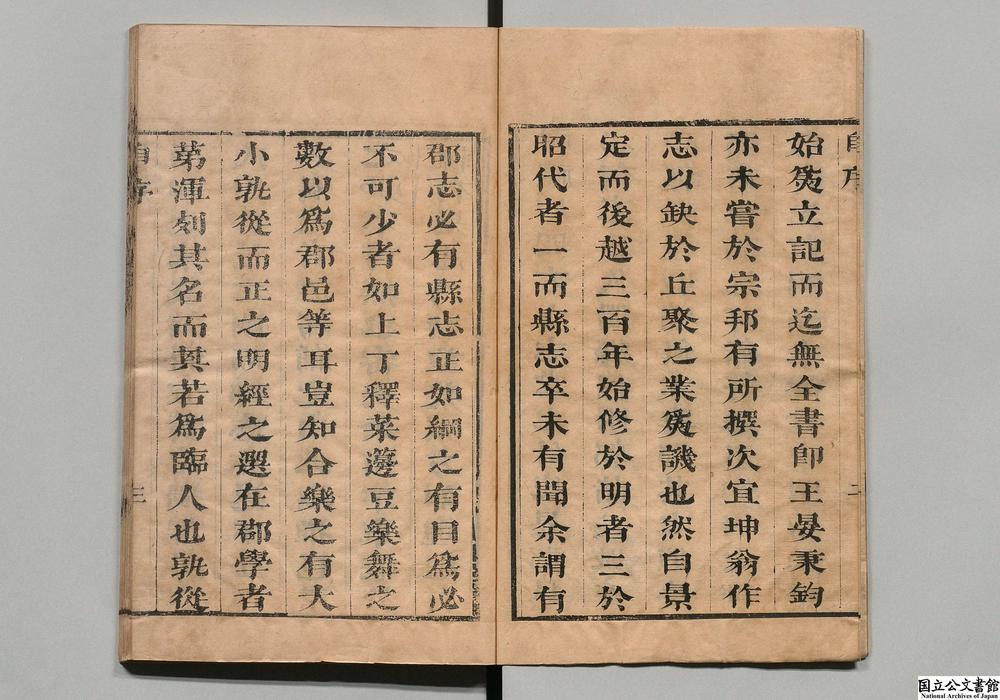 自序
二
始爲立記而迄無全書卽王晏秉鈞
亦未嘗於宗邦有所撰次宜坤翁作
志以缺於丘聚之業爲譏也然自景
定而後越三百年始修於明者三於
昭代者一而縣志卒未有聞余謂有
郡志必有縣志正如綱之有目爲必
不可少者如上丁釋菜籩豆樂舞之
數以爲郡邑等耳豈知合樂之有大
小孰從而正之明經之選在郡學者
第渾列其名而其若爲臨人也孰從
自序
三
国立公文書館
National Archives of Japan